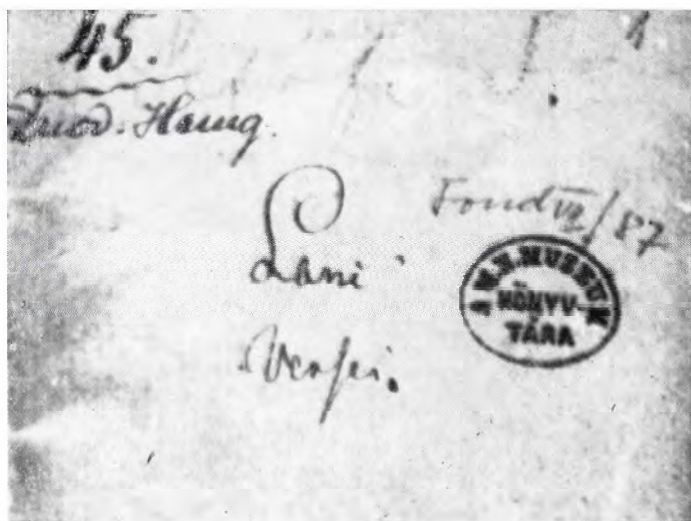 45.
Duod. Hung.
Fond VII/87
Lani
Versei.
A M. N. MUSEUM
KÖNYV-
TÁRA